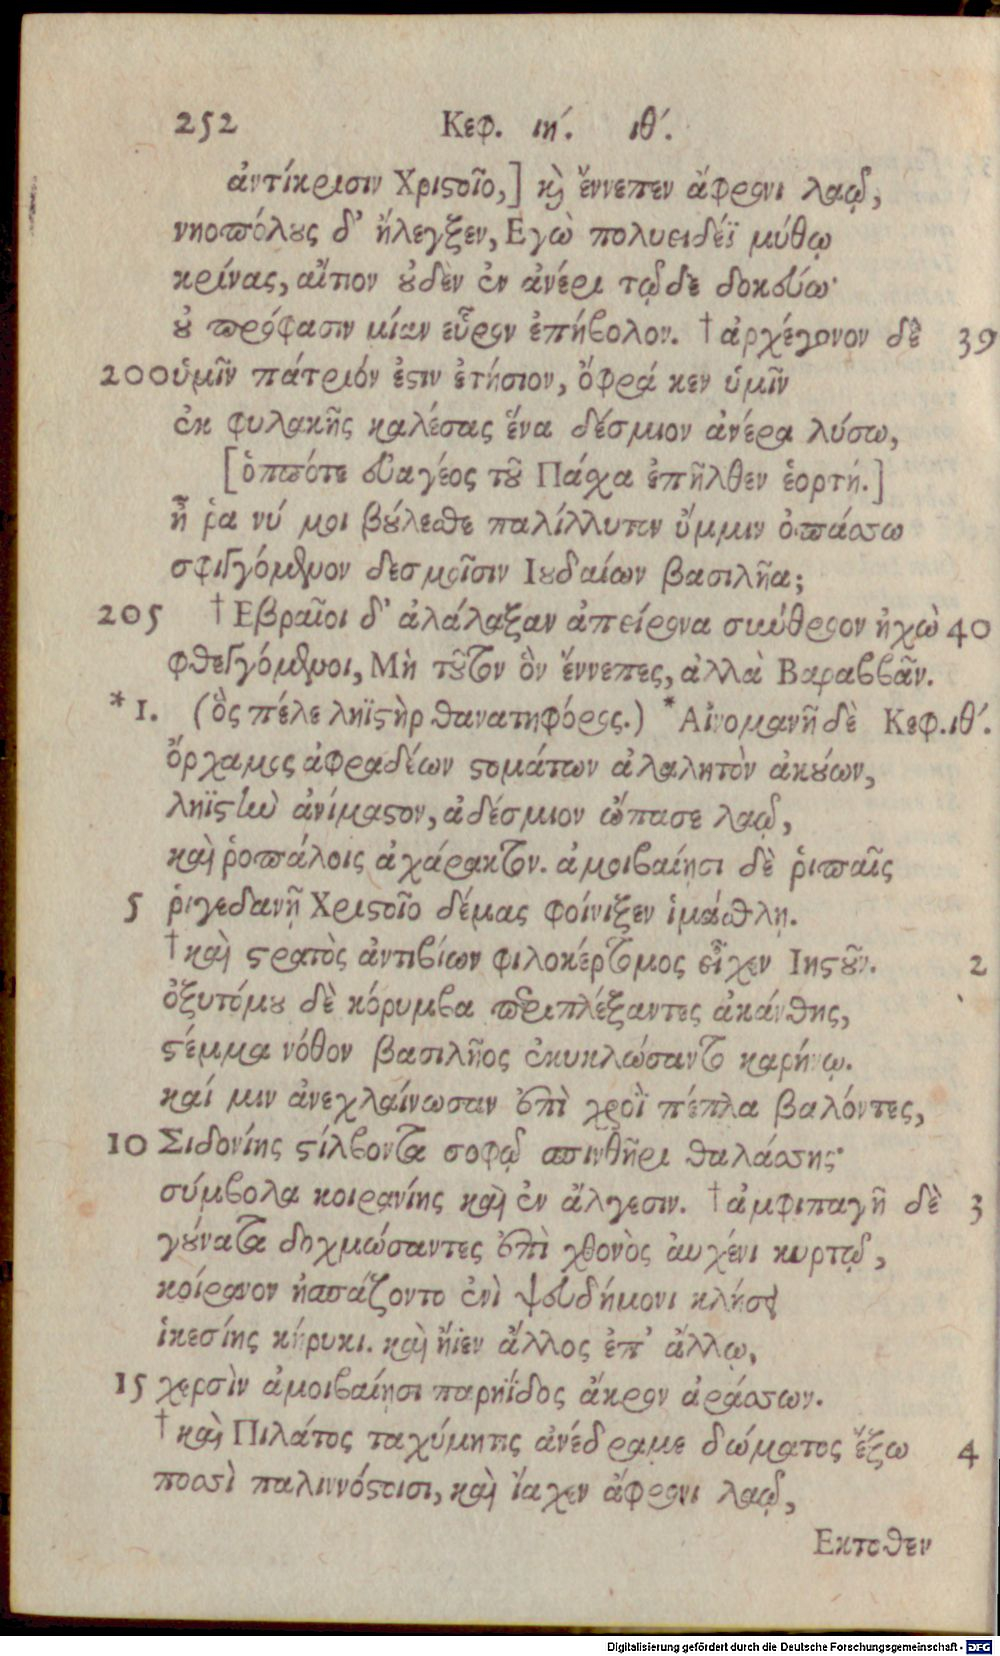 252 Κεφ. ιή. ιθ΄.
ἀντίκρισιν Χριστοῖο,] καὶ ἔννεπεν ἄφρονι λαῷ,
νηοπόλους δ' ἤλεγξεν, Εγὼ πολυειδέϊ μύθῳ
κρίνας, αἴτιον οὐδὲν ἐν ἀνέρι τῷδε δοκεύω·
οὐ πρόφασιν μίαν εὗρον ἐπήβολον. † ἀρχέγονον δὲ 39
200 ὑμῖν πάτριόν ἐστιν ἐτήσιον, ὄφρά κεν ὑμῖν
ἐκ φυλακῆς καλέσας ἕνα δέσμιον ἀνέρα λύσω,
[ὁππότε εὐαγέος τοῦ Πάσχα ἐπῆλθεν ἑορτή.]
ἦ ῥα νύ μοι βούλεσθε παλίλλυτον ὔμμιν ὀπάσσω
σφιγγόμενον δεσμοῖσιν Ιουδαίων βασιλῆα;
205 † Εβραῖοι δ' ἀλάλαξαν ἀπείρονα σκύθρον ἠχὼ 40
φθεγγόμενοι, Μὴ τοῦτον ὃν ἔννεπες, ἀλλὰ Βαραββᾶν.
* 1. (ὃς πέλε ληϊστὴρ θανατηφόρος.) * Αἰνομανῆ δὲ Κεφ. ιθ΄.
ὄρχαμος ἀφραδέων στομάτων ἀλαλητὸν ἀκούων,
ληϊστὴν ἀνίμαστον, ἀδέσμιον ὤπασε λαῷ,
καὶ ῥοπάλοις ἀχάρακτον. ἀμοιβαίῃσι δὲ ῥιπαῖς
5 ῥιγεδανῇ Χριστοῖο δέμας φοίνιξεν ἱμάσθλῃ.
† καὶ στρατὸς ἀντιβίων φιλοκέρτομος εἶχεν Ιησοῦν. 2
ὀξυτόμου δὲ κόρυμβα περιπλέξαντες ἀκάνθης,
στέμμα νόθον βασιλῆος ἐκυκλώσαντο καρήνῳ.
καί μιν ἀνεχλαίνωσαν ἐπὶ χροῒ πέπλα βαλόντες,
10 Σιδονίης στίλβοντα σοφῷ σπινθῆρι θαλάσσης·
σύμβολα κοιρανίης καὶ ἐν ἄλγεσιν. † ἀμφιπαγῆ δὲ 3
γούνατα δοχμώσαντες ἐπὶ χθονὸς αὐχένι κυρτῷ,
κοίρανον ἠσπάζοντο ἐνὶ ψευδήμονι κλήσει
ἱκεσίης κήρυκι. καὶ ἤϊεν ἄλλος ἐπ' ἄλλῳ,
15 χερσὶν ἀμοιβαίῃσι παρηΐδος ἄκρον ἀράσσων.
† καὶ Πιλάτος ταχύμητις ἀνέδραμε δώματος ἔξω 4
ποσσὶ παλιννόστοισι, καὶ ἴαχεν ἄφρονι λαῷ,
Εκτοθεν
Digitalisierung gefördert durch die Deutsche Forschungsgemeinschaft - DFG